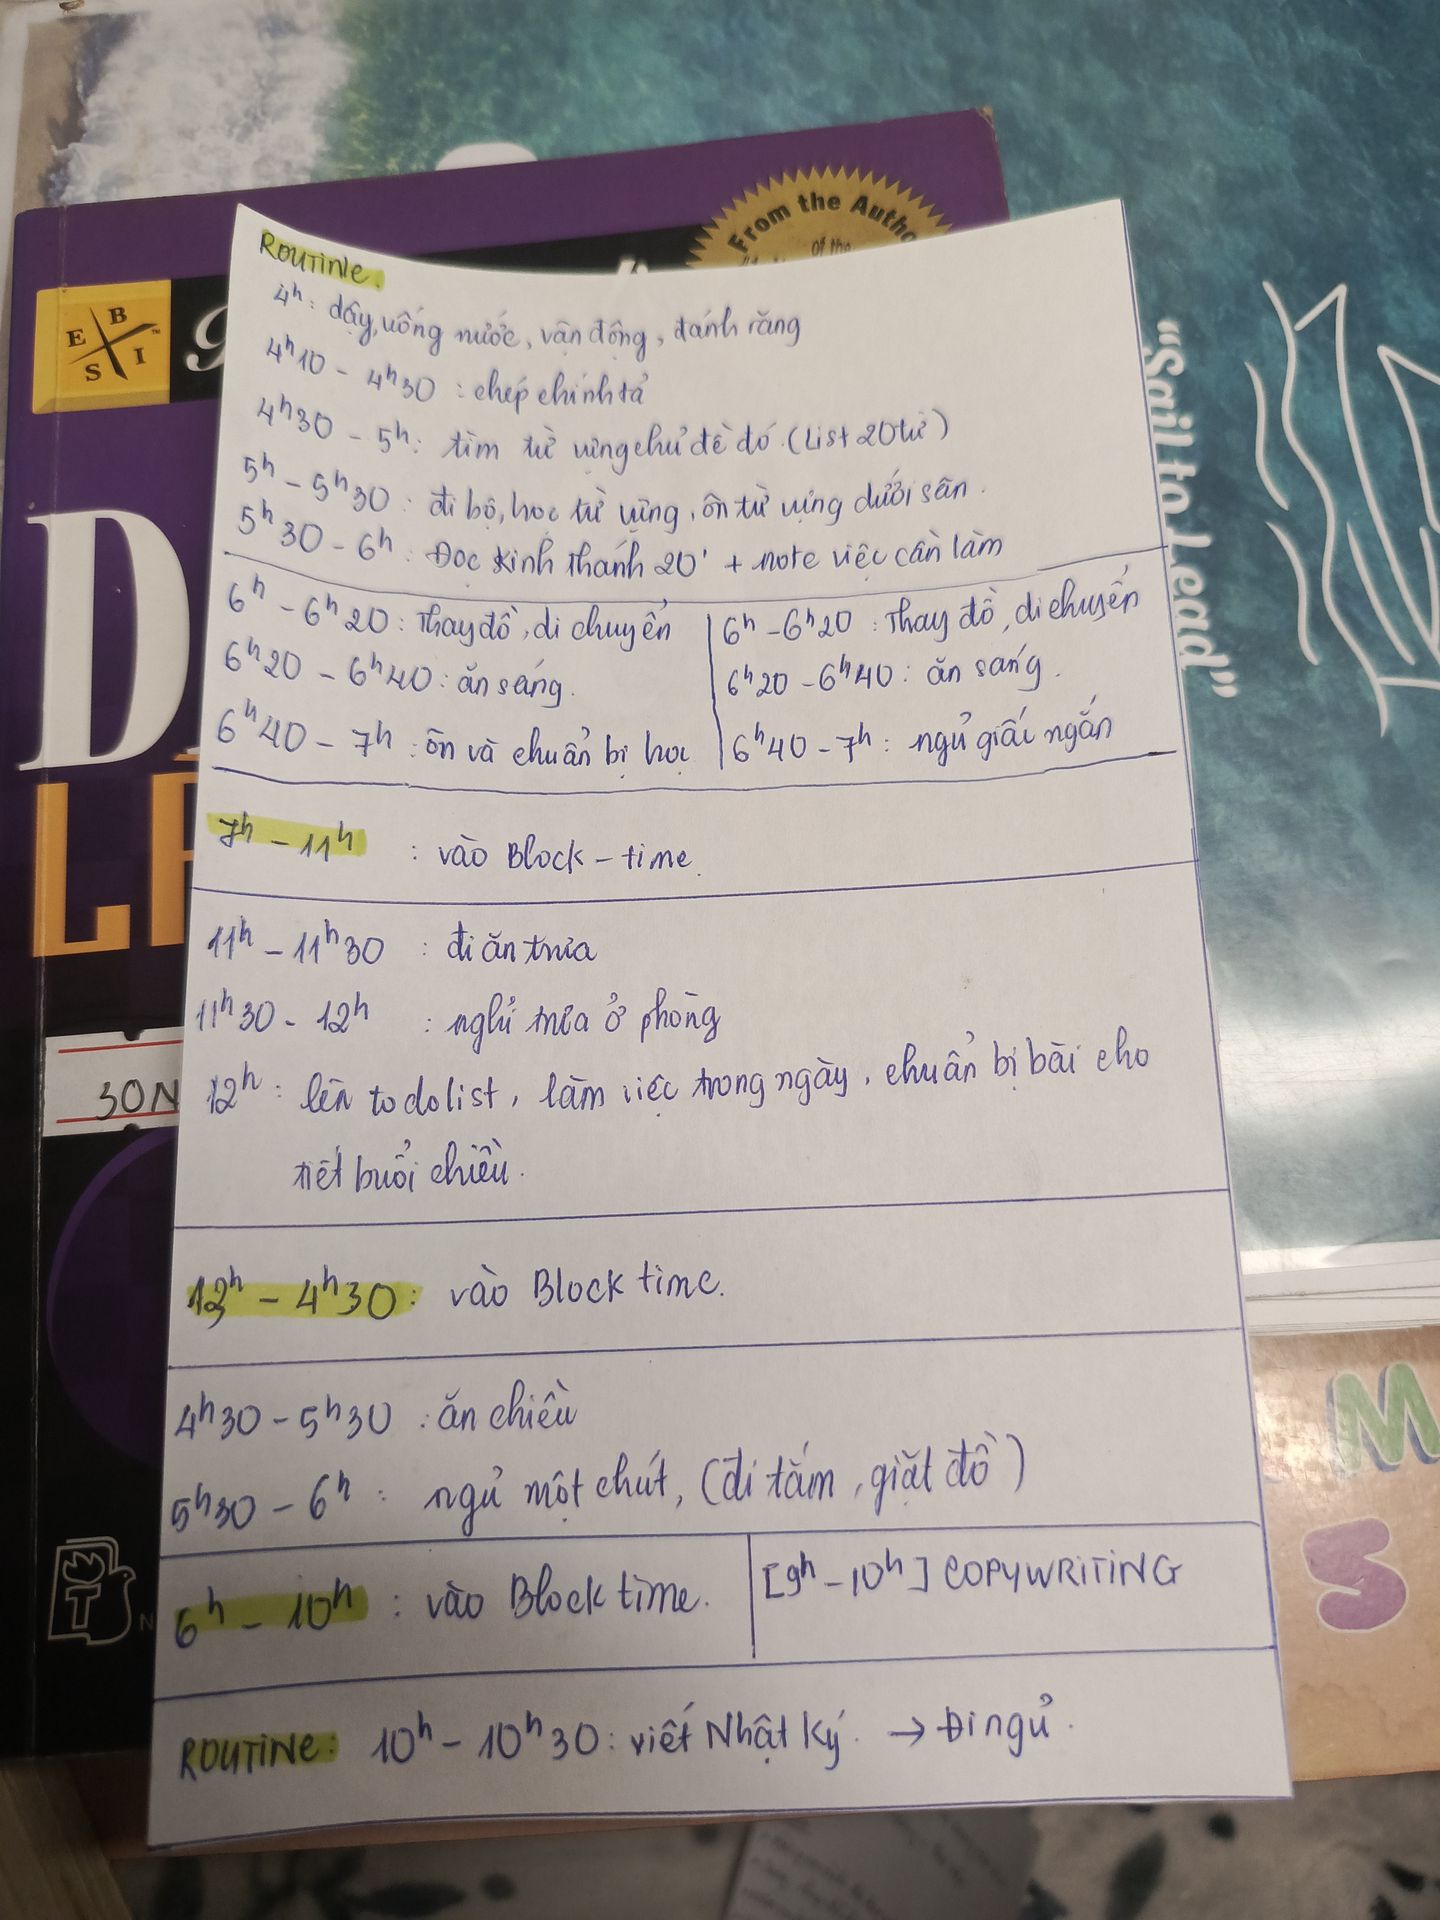 From the Autho
of the
E B S I
D
L
30N
T
N
"Sail to Lead"
M
S
ROUTINE.
4h: dậy, uống nước, vận động, đánh răng
4h10 - 4h30 : chép chính tả
4h30 - 5h: tìm từ vựng chủ đề đó. (List 20 từ)
5h - 5h30 : đi bộ, học từ vựng, ôn từ vựng dưới sân.
5h30 - 6h : Đọc Kinh Thánh 20' + note việc cần làm
6h - 6h20 : Thay đồ, di chuyển
6h20 - 6h40 : ăn sáng.
6h40 - 7h : ôn và chuẩn bị học
6h - 6h20 : Thay đồ, di chuyển
6h20 - 6h40 : ăn sáng.
6h40 - 7h : ngủ giấc ngắn
7h - 11h : vào Block - time.
11h - 11h30 : đi ăn trưa
11h30 - 12h : nghỉ trưa ở phòng
12h : lên to do list, làm việc trong ngày, chuẩn bị bài cho
tiết buổi chiều.
- 4h30 : vào Block time.
4h30 - 5h30 : ăn chiều
5h30 - 6h : ngủ một chút, (đi tắm, giặt đồ)
6h - 10h : vào Block time.
[9h - 10h] COPYWRITING
ROUTINE: 10h - 10h30 : viết Nhật Ký. → Đi ngủ.